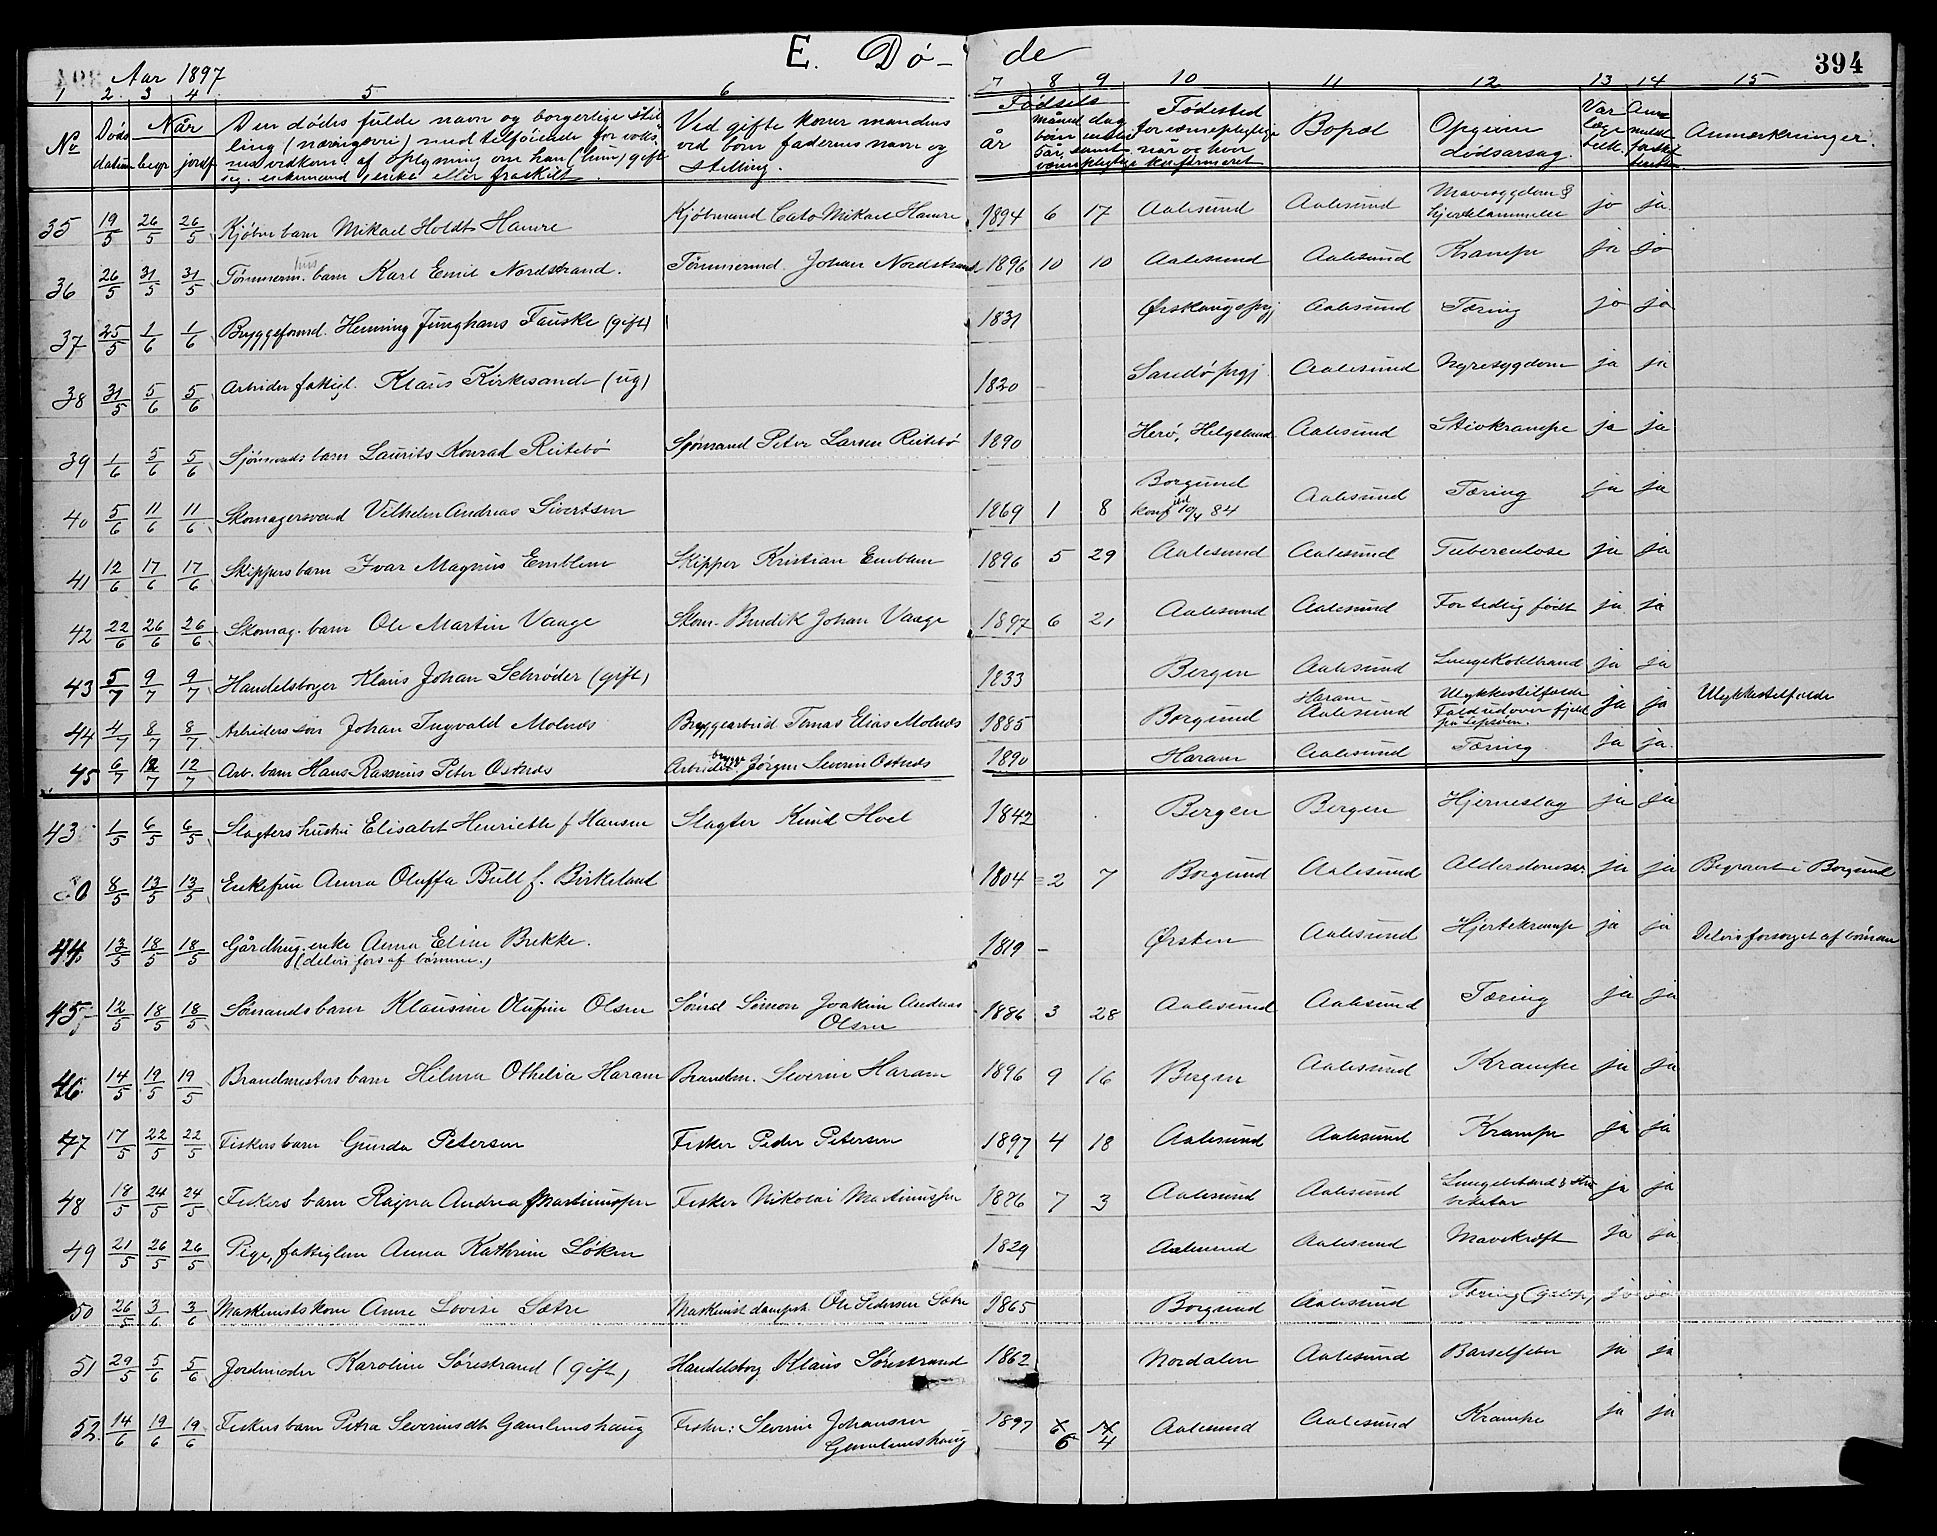 E. Dø- de
394
Aar 1897
1 2 3 4 5 6 7 8 9 10 11 12 13 14 15
No Døds datum Når begr. jordf. Den dødes fulde navn og borgerlige stilling (næringsvei) med tilföiende for voksnes vedkom. af oplysning om han (hun) gift ug. enkemand, enke eller fraskilt. Ved gifte koner mandens ved børn faderens navn og stilling. Fødsels år måned dag Fødested for værnepligtige når og hvor konfirmeret Bopæl Opgiven Dödsårsag. Var læge tilk. Anmeldt Anmærkninger.
35 19/5 26/5 26/5 Kjøbm barn Mikael Holdt Hamre Kjøbmand Cato Mikael Hamre 1894 6 17 Aalesund Aalesund Mavesygdom & hjertelammelse ja ja
36 26/5 31/5 31/5 Tömmerm. barn Karl Emil Nordstrand. Tömmermd. Johan Nordstrand 1896 10 10 Aalesund Aalesund Krampe ja ja
37 25/5 1/6 1/6 Bryggeformd. Henning Junghans Fauske (gift) 1831 Ørskougs prgj Aalesund Tæring ja ja
38 31/5 5/6 5/6 Arbeider fattigl. Klaus Kirkesande (ug) 1820 - Sandø prgj Aalesund Nyresygdom ja ja
39 1/6 5/6 5/6 Sjömands barn Laurits Konrad Reitebö Sjömand Peter Larsen Reitebö 1890 Herö, Helgeland Aalesund Stivkrampe ja ja
40 5/6 11/6 11/6 Skomagersvend Vilhelm Andreas Sivertsen 1869 1 8 Borgund konf ibd 10/4 84 Aalesund Tæring ja ja
41 12/6 17/6 17/6 Skippers barn Ivar Magnus Emblem Skipper Kristian Emblem 1896 5 29 Aalesund Aalesund Tuberculose ja ja
42 22/6 26/6 26/6 Skomag. barn Ole Martin Vaage Skom. Bendik Johan Vaage 1897 6 21 Aalesund Aalesund For tidlig født ja ja
43 5/7 9/7 9/7 Handelsborger Klaus Johan Schrøder (gift) 1833 Bergen Aalesund Lungekoldbrand ja ja
44 4/7 8/7 8/7 Arbeiders sön Johan Ingvald Molnæs Bryggearbeid Tomas Elias Molnæs 1885 Borgund Haram Aalesund Ulykkestilfælde Fald udover fjeld på Lepsöen. ja ja Ulykkestilfælde
45 6/7 12/7 12/7 Arb. barn Hans Rasmus Peter Ostnes brygge Arbeider. Jörgen Severin Ostnes 1890 Haram Aalesund Tæring ja ja.
43 1/5 6/5 6/5 Slagters hustru Elisabet Henriette f Hansen Slagter Knud Hoel 1842 Bergen Bergen Hjerneslag ja ja
0 8/5 13/5 13/5 Enkefru Anna Oluffa Bull f. Birkeland 1804 2 7 Borgund Aalesund Alderdomssv. ja ja Begravet i Borgund
44 13/5 18/5 18/5 Gårdbrug. enke Anna Eline Brekke. (delvis fors af børnene.) 1819 - Ørsten Aalesund Hjertekrampe ja ja Delvis forsørget af börnene
45 12/5 18/5 18/5 Sömands barn Klausine Olufine Olsen Sömd Simon Joakim Andreas Olsen 1886 3 28 Aalesund Aalesund Tæring ja ja
46 14/5 19/5 19/5 Brandmesters barn Hilma Othilia Haram Brandm. Severin Haram 1896 9 16 Bergen Aalesund Krampe ja ja
47 17/5 22/5 22/5 Fiskers barn Gunda Petersen Fisker Peder Petersen 1897 4 18 Aalesund Aalesund Krampe ja ja
48 18/5 24/5 24/5 Fiskers barn Ragna Andrea Martinussen Fisker Nikolai Martinussen 1886 7 3 Aalesund Aalesund ja ja
49 21/5 26/5 26/5 Pige, fattiglem Anna Kathrine Löken 1829 Aalesund Aalesund Mavekræft ja ja
50 26/5 3/6 3/6 Maskinists kone Anne Lovise Sætre Maskinist dampsk Ole Pedersen Sætre 1865 Borgund Aalesund Tæring (galop) ja ja
51 29/5 5/6 5/6 Jordemoder Karoline Sörestrand (gift) Handelsborg Klaus Sörestrand 1862 Nordalen Aalesund Barselfeber ja ja
52 14/6 19/6 19/6 Fiskers barn Petra Severinsdt Gamlemshaug Fisker: Severin Johansen Gamlemshaug 1897 6 4 Aalesund Aalesund Krampe ja ja